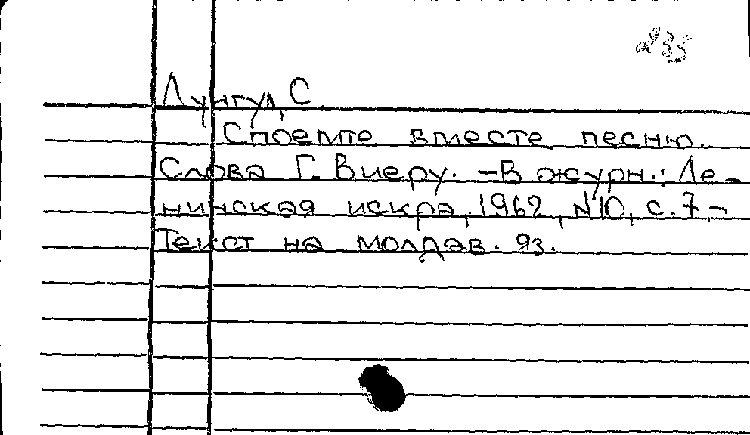 235
Лунгул, С
Споемте вместе песню.
Слова Г. Виеру. – В журн.: Ле-
нинская искра, 1962, №10, с. 7 –
Текст на молдав. яз.